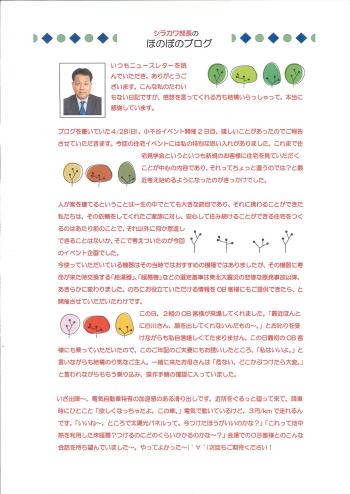 シラカワ部長の
ほのぼのブログ
いつもニュースレターを読
んでいただき、ありがとうご
ざいます。こんな私のたわい
もない日記ですが、感想を言ってくれる方も結構いらっしゃって、本当に
感謝しています。
ブログを書いていた4/28(日)、小千谷イベント開催2日目。嬉しいことがあったのでご報告
させていただきます。今回の住宅イベントには私の特別な思い入れがありました。これまで住
宅見学会というといつも新規のお客様に住宅を見ていただく
ことが中心の内容であり、それってちょっと違うのでは？と最
近考え始めるようになったのがきっかけでした。
人が家を建てるということは一生の中でとても大きな節目であり、それに携わることができた
私たちは、その依頼をしてくれたご家族に対し、安心して住み続けることができる住宅をつく
るのはあたり前のことで、それ以外に何か恩返し
できることはないか。そこで考えついたのが今回
のイベント企画でした。
今使っていただいている機器はその当時ではおすすめの機種ではありましたが、その機器に寿
命が来た時交換する「給湯器」、「暖房機」などの選定基準は東北大震災の悲惨な原発事故以降、
あきらかに変わりました。のちにお役立ていただける情報をOB客様にもご提供できたら、と
開催させていただいたわけです。
この日、2組のOB客様が来場してくれました。「最近ほんと
に白川さん、顔を出してくれないんだもの〜。」とお叱りを受
けながらも私自信嬉しくてたまりません。この日最初のOB客
様にも乗っていただいたので、このご年配のご夫妻にもお誘いしたところ、「私はいいよ。」と
言いながらも結構の気なご主人。一緒に来たお母さんは「危ない、どこかぶつけたら大変。」
と言われながらももう乗り込み、操作手順の確認に入っていました。
いざ出陣〜。電気自動車特有の加速感のある滑り出しです。近所をぐるっと回って来て、降車
時にひとこと「欲しくなっちゃたよ、この車。」電気で動いているけど、3円/kmで走れるん
です。「いいね〜。ところで太陽光パネルって、今つけたほうがいいのかな？」「これって地中
熱を利用した床暖房？つけるのにどのくらいかかるのかな〜？」会場でのOB客様とのこんな
会話を待ち望んでいました〜。やってよかった〜(´▽｀)次回もご期待ください！